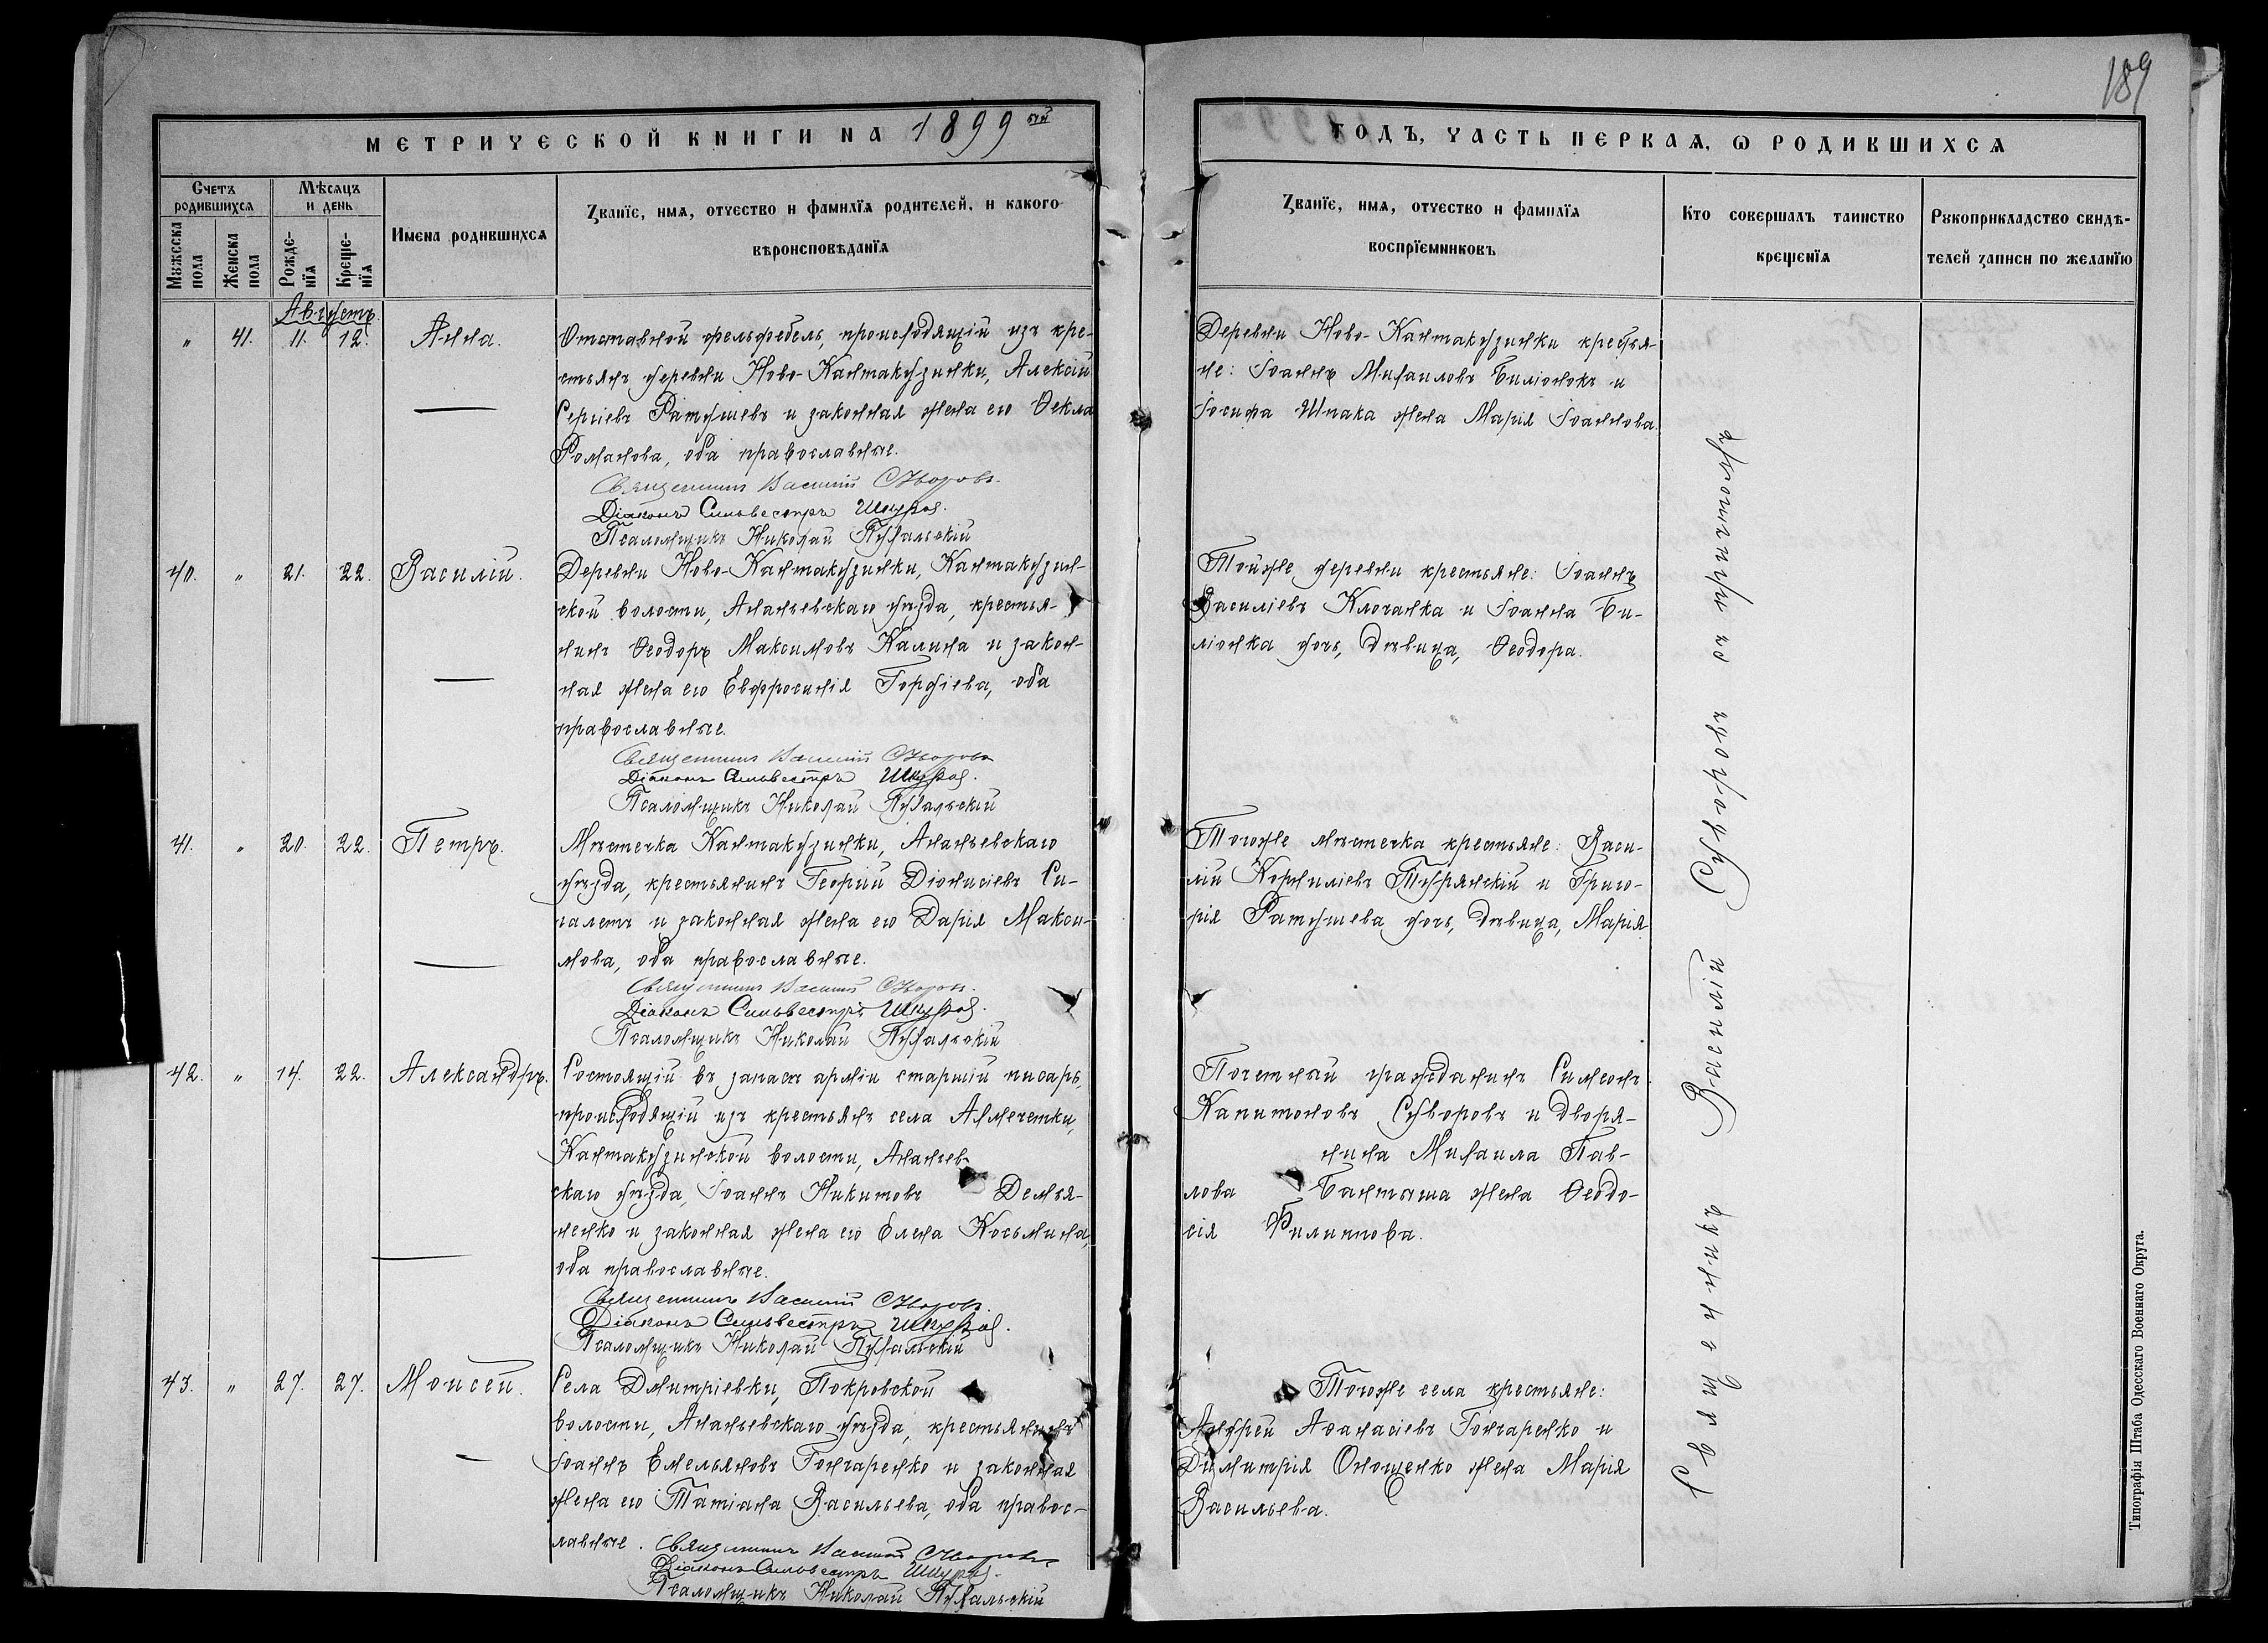 189
МЕТРИЧЕСКОЙ КНИГИ НА 1899 ый
ГОДЪ, ЧАСТЬ ПЕРВАЯ, Ѡ РОДИВШИХСЯ
Счетъ родившихся
Мѣсяцъ и день
Мужеска пола
Женска пола
Рожде-нїя
Креще-нїя
Имена родившихся
Званїе, имя, отчество и фамилїя родителей, и какого
вѣроисповѣданїя
Званїе, имя, отчество и фамилїя
воспрїемниковъ
Кто совершалъ таинство
крещенїя
Рукоприкладство свидѣ-
телей записи по желанїю
Августъ.
" 41. 11. 12. Анна.
Отставной фельдфебель, происходящій изъ кре-
стьянъ деревни Ново-Кантакузинки, Алексій
Сергіевъ Ратушевъ и законная жена его Ѳекла
Романова, оба православные.
Священникъ Василій Суворовъ.
Діаконъ Сильвестръ
Псаломщикъ Николай
Деревни Ново-Кантакузинки крестья-
не: Іоаннъ Михаиловъ Биліонокъ и
Іосифа Шпака жена Марія Іоаннова.
40. " 21. 22. Василій.
Деревни Ново-Кантакузинки, Кантакузин-
ской волости, Ананьевскаго уѣзда, крестья-
нинъ Ѳеодоръ Максимовъ Калина и закон-
ная жена его Евфросинія Гордіева, оба
православные.
Священникъ Василій Суворовъ
Діаконъ Сильвестръ
Псаломщикъ Николай
Тойже деревни крестьяне: Іоаннъ
Василіевъ Клочанка и Іоанна Би-
ліонка дочь, дѣвица, Ѳеодора.
41. " 20. 22. Петръ.
Мѣстечка Кантакузинки, Ананьевскаго
уѣзда, крестьянинъ Георгій Діонисіевъ Си-
галетъ и законная жена его Дарія Макси-
мова, оба православные.
Священникъ Василій Суворовъ.
Діаконъ Сильвестръ
Псаломщикъ Николай
Тогоже мѣстечка крестьяне: Васи-
лій Корниліевъ и Григо-
рія Ратушева дочь, дѣвица, Марія.
42. " 14. 22. Александръ.
Состоящій въ запасѣ арміи старшій писарь,
происходящій изъ крестьянъ села Акмечетки,
Кантакузинской волости, Ананьев-
скаго уѣзда, Іоаннъ Никитовъ Демья-
ненко и законная жена его Елена Косьмина,
оба православные.
Священникъ Василій Суворовъ.
Діаконъ Сильвестръ
Псаломщикъ Николай
Почетный гражданинъ Симеонъ
Капитоновъ Суворовъ и дворя-
нина Михаила Пав-
лова Бантыша жена Ѳеодо-
сія Филиппова.
43. " 27. 27. Моисей.
Села Дмитріевки, Покровской
волости, Ананьевскаго уѣзда, крестьянинъ
Іоаннъ Емельяновъ Гончаренко и законная
жена его Татіана Васильева, оба правос-
лавные.
Священникъ Василій Суворовъ
Діаконъ Сильвестръ
Псаломщикъ Николай
Тогоже села крестьяне:
Андрей Аѳанасіевъ Гончаренко и
Димитрія Онощенко жена Марія
Васильева.
Священникъ Василій Суворовъ съ причтомъ
Типографія Штаба Одесскаго Военнаго Округа.